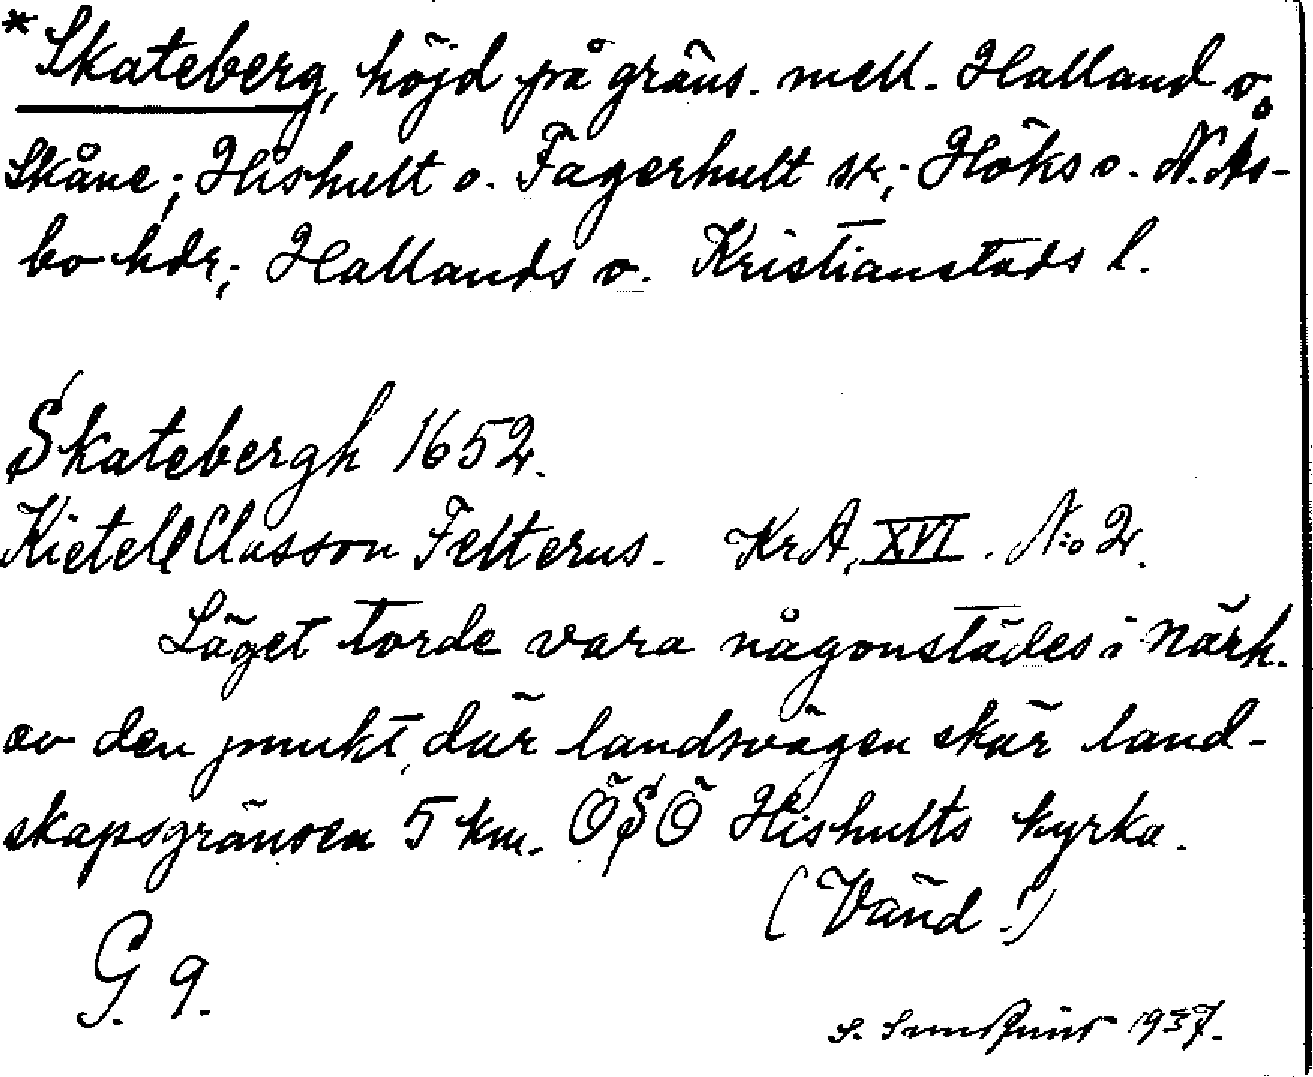 *Skateberg, höjd på gräns. mell. Halland o.
Skåne; Hishult o. Fagerhult sk; Höks o. N. Ås-
bo hdr; Hallands o. Kristianstads l.
Skatebergh 1652.
Kietell Classon Felterus. KrA, XVI. N:o 2.
Läget torde vara någonstädes i närh.
av den punkt, där landsvägen skär land-
skapsgränsen 5 km. ÖSÖ Hishults kyrka.
(Vänd!)
G. 9.
S. Sundquist 1937.